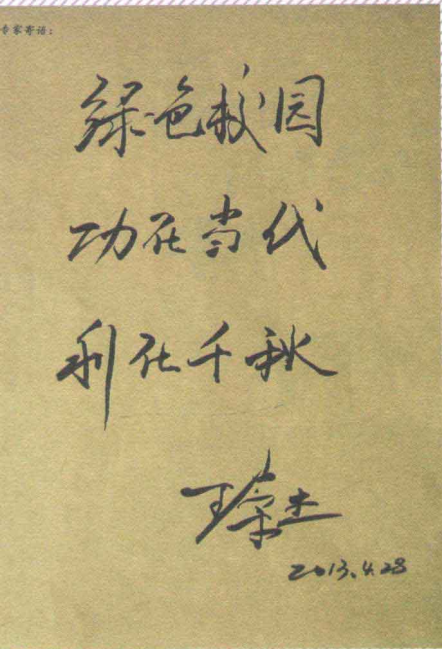 专家寄语：
绿色校园
功在当代
利在千秋
王
2013.4.28